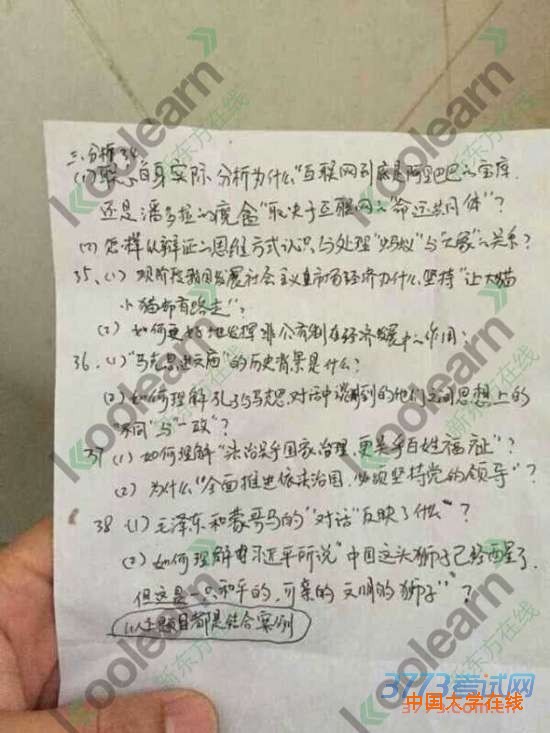 三、分析 34.
(1) 联系自身实际 分析为什么"互联网到底是阿里巴巴的宝库
还是潘多拉的魔盒"取决于互联网的"命运共同体"?
(2) 怎样从辩证的思维方式认识与处理"蚂蚁"与"大象"的关系?
35、(1) 现阶段我国发展社会主义市场经济为什么坚持"让大猫
小猫都有路走"?
(2) 如何更好地发挥非公有制在经济发展中的作用?
36、(1) "马克思进文庙"的历史背景是什么?
(2) 如何理解孔子与马克思对话中谈到的他们之间思想上的
"不同"与"一致"?
37 (1) 如何理解"法治关乎国家治理,更关乎百姓福祉"?
(2) 为什么"全面推进依法治国,必须坚持党的领导"?
38 (1) 毛泽东和蒙哥马利的"对话"反映了什么?
(2) 如何理解习近平所说"中国这头狮子已经醒了,
但这是一只和平的,可亲的 文明的狮子"?
以上题目都是结合案例
koolearn
新东方在线
3773考试网
中国大学在线